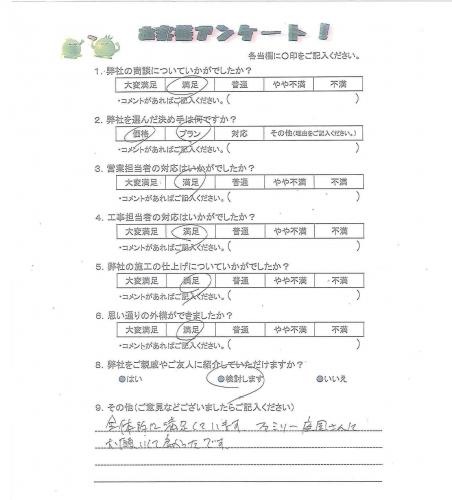 お客様アンケート！
各当欄に〇印をご記入ください。
1. 弊社の商談についていかがでしたか？
大変満足 満足 普通 やや不満 不満
・コメントがあればご記入ください。(
2. 弊社を選んだ決め手は何ですか？
価格 プラン 対応 その他(理由をご記入ください。)
・コメントがあればご記入ください。(
3. 営業担当者の対応はいかがでしたか？
大変満足 満足 普通 やや不満 不満
・コメントがあればご記入ください。(
4. 工事担当者の対応はいかがでしたか？
大変満足 満足 普通 やや不満 不満
・コメントがあればご記入ください。(
5. 弊社の施工の仕上げについていかがでしたか？
大変満足 満足 普通 やや不満 不満
・コメントがあればご記入ください。(
6. 思い通りの外構ができましたか？
大変満足 満足 普通 やや不満 不満
・コメントがあればご記入ください。(
8. 弊社をご親戚やご友人に紹介していただけますか？
はい 検討します いいえ
9. その他(ご意見などございましたらご記入ください)
全体的に満足しています ファミリー庭園さんに
お願いして良かったです。